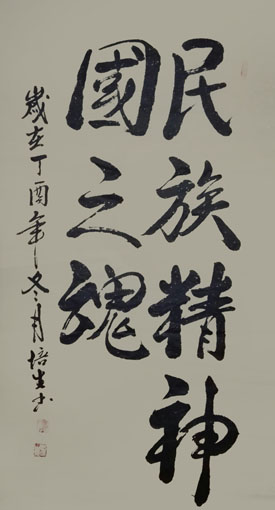 民族精神
國之魂
歲在丁酉年冬月培生书